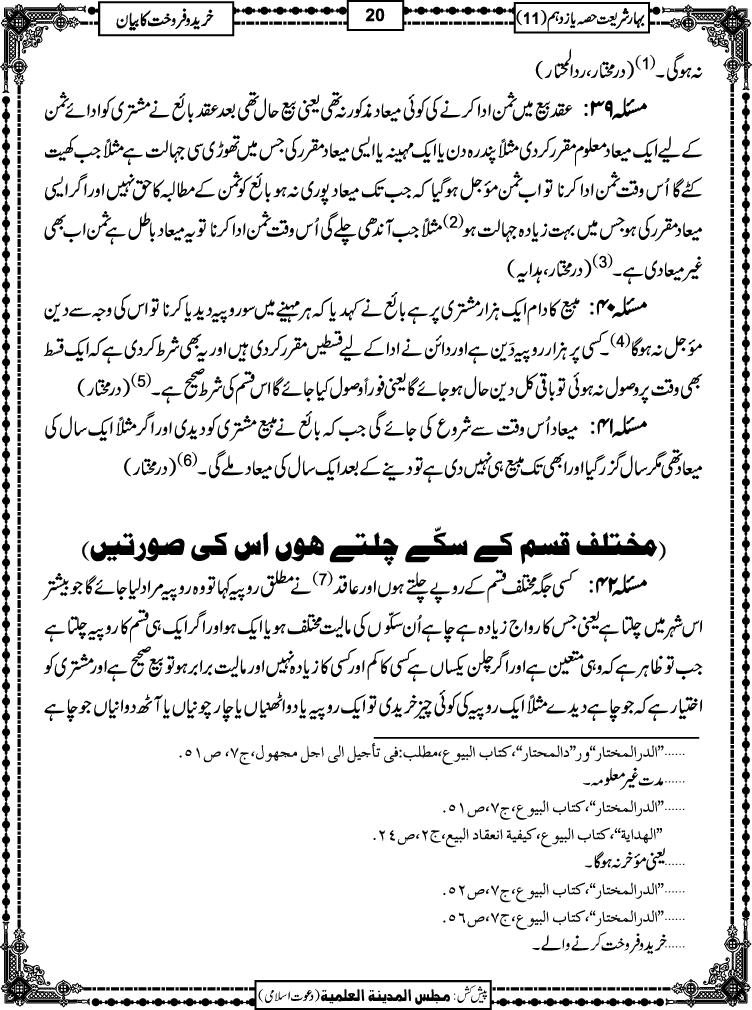 بہار شریعت حصہ یازدہم (11)
20
خرید و فروخت کا بیان
نہ ہوگی۔(1) (درمختار، ردالمحتار)
مسئلہ ۳۹: عقد بیع میں ثمن ادا کرنے کی کوئی میعاد مذکور نہ تھی یعنی بیع حال تھی بعد عقد بائع نے مشتری کو ادائے ثمن
کے لیے ایک میعاد معلوم مقرر کردی مثلاً پندرہ دن یا ایک مہینہ یا ایسی میعاد مقرر کی جس میں تھوڑی سی جہالت ہے مثلاً جب کھیت
کٹے گا اُس وقت ثمن ادا کرنا تو اب ثمن مؤجل ہوگیا کہ جب تک میعاد پوری نہ ہو بائع کو ثمن کے مطالبہ کا حق نہیں اور اگر ایسی
میعاد مقرر کی ہو جس میں بہت زیادہ جہالت ہو(2) مثلاً جب آندھی چلے گی اُس وقت ثمن ادا کرنا تو یہ میعاد باطل ہے ثمن اب بھی
غیر میعادی ہے۔(3) (درمختار، ہدایہ)
مسئلہ ۴۰: مبیع کا دام ایک ہزار مشتری پر ہے بائع نے کہدیا کہ ہر مہینے میں سو روپیہ دیدیا کرنا تو اس کی وجہ سے دین
مؤجل نہ ہوگا(4)۔ کسی پر ہزار روپیہ دَین ہے اور دائن نے ادا کے لیے قسطیں مقرر کردی ہیں اور یہ بھی شرط کردی ہے کہ ایک قسط
بھی وقت پر وصول نہ ہوئی تو باقی کل دین حال ہو جائے گا یعنی فوراً وصول کیا جائے گا اس قسم کی شرط صحیح ہے۔(5) (درمختار)
مسئلہ ۴۱: میعاد اُس وقت سے شروع کی جائے گی جب کہ بائع نے مبیع مشتری کو دیدی اور اگر مثلاً ایک سال کی
میعاد تھی مگر سال گزر گیا اور ابھی تک مبیع ہی نہیں دی ہے تو دینے کے بعد ایک سال کی میعاد ملے گی۔(6) (درمختار)
(مختلف قسم کے سکّے چلتے ھوں اس کی صورتیں)
مسئلہ ۴۲: کسی جگہ مختلف قسم کے روپے چلتے ہوں اور عاقد(7) نے مطلق روپیہ کہا تو وہ روپیہ مراد لیا جائے گا جو بیشتر
اس شہر میں چلتا ہے یعنی جس کا رواج زیادہ ہے چاہے اُن سکّوں کی مالیت مختلف ہو یا ایک ہو اور اگر ایک ہی قسم کا روپیہ چلتا ہے
جب تو ظاہر ہے کہ وہی متعین ہے اور اگر چلن یکساں ہے کسی کا کم اور کسی کا زیادہ نہیں اور مالیت برابر ہو تو بیع صحیح ہے اور مشتری کو
اختیار ہے کہ جو چاہے دیدے مثلاً ایک روپیہ کی کوئی چیز خریدی تو ایک روپیہ یا دو اٹھنیاں یا چار چونیاں یا آٹھ دوانیاں جو چاہے
......"الدرالمختار"ور"دالمحتار"، کتاب البیوع، مطلب: فی تأجیل الی اجل مجھول، ج۷، ص۵۱.
......مدت غیر معلومہ۔
......"الدرالمختار"، کتاب البیوع، ج۷، ص۵۱.
"الھدایۃ"، کتاب البیوع، کیفیۃ انعقاد البیع، ج۲، ص۲٤.
......یعنی مؤخر نہ ہوگا۔
......"الدرالمختار"، کتاب البیوع، ج۷، ص۵۲.
......"الدرالمختار"، کتاب البیوع، ج۷، ص۵٦.
......خرید و فروخت کرنے والے۔
پیش کش: مجلس المدینۃ العلمیۃ (دعوت اسلامی)